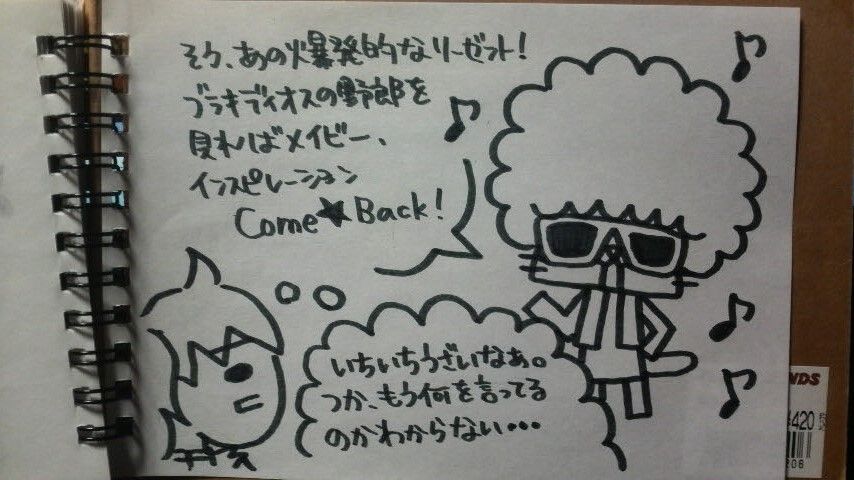 そう、あの爆発的なリーゼント！
ブラキディオスの野郎を
見ればメイビー、
インスピレーション
Come★Back!
いちいちうざいなぁ。
つか、もう何を言ってる
のかわからない・・・
NDS
420
206